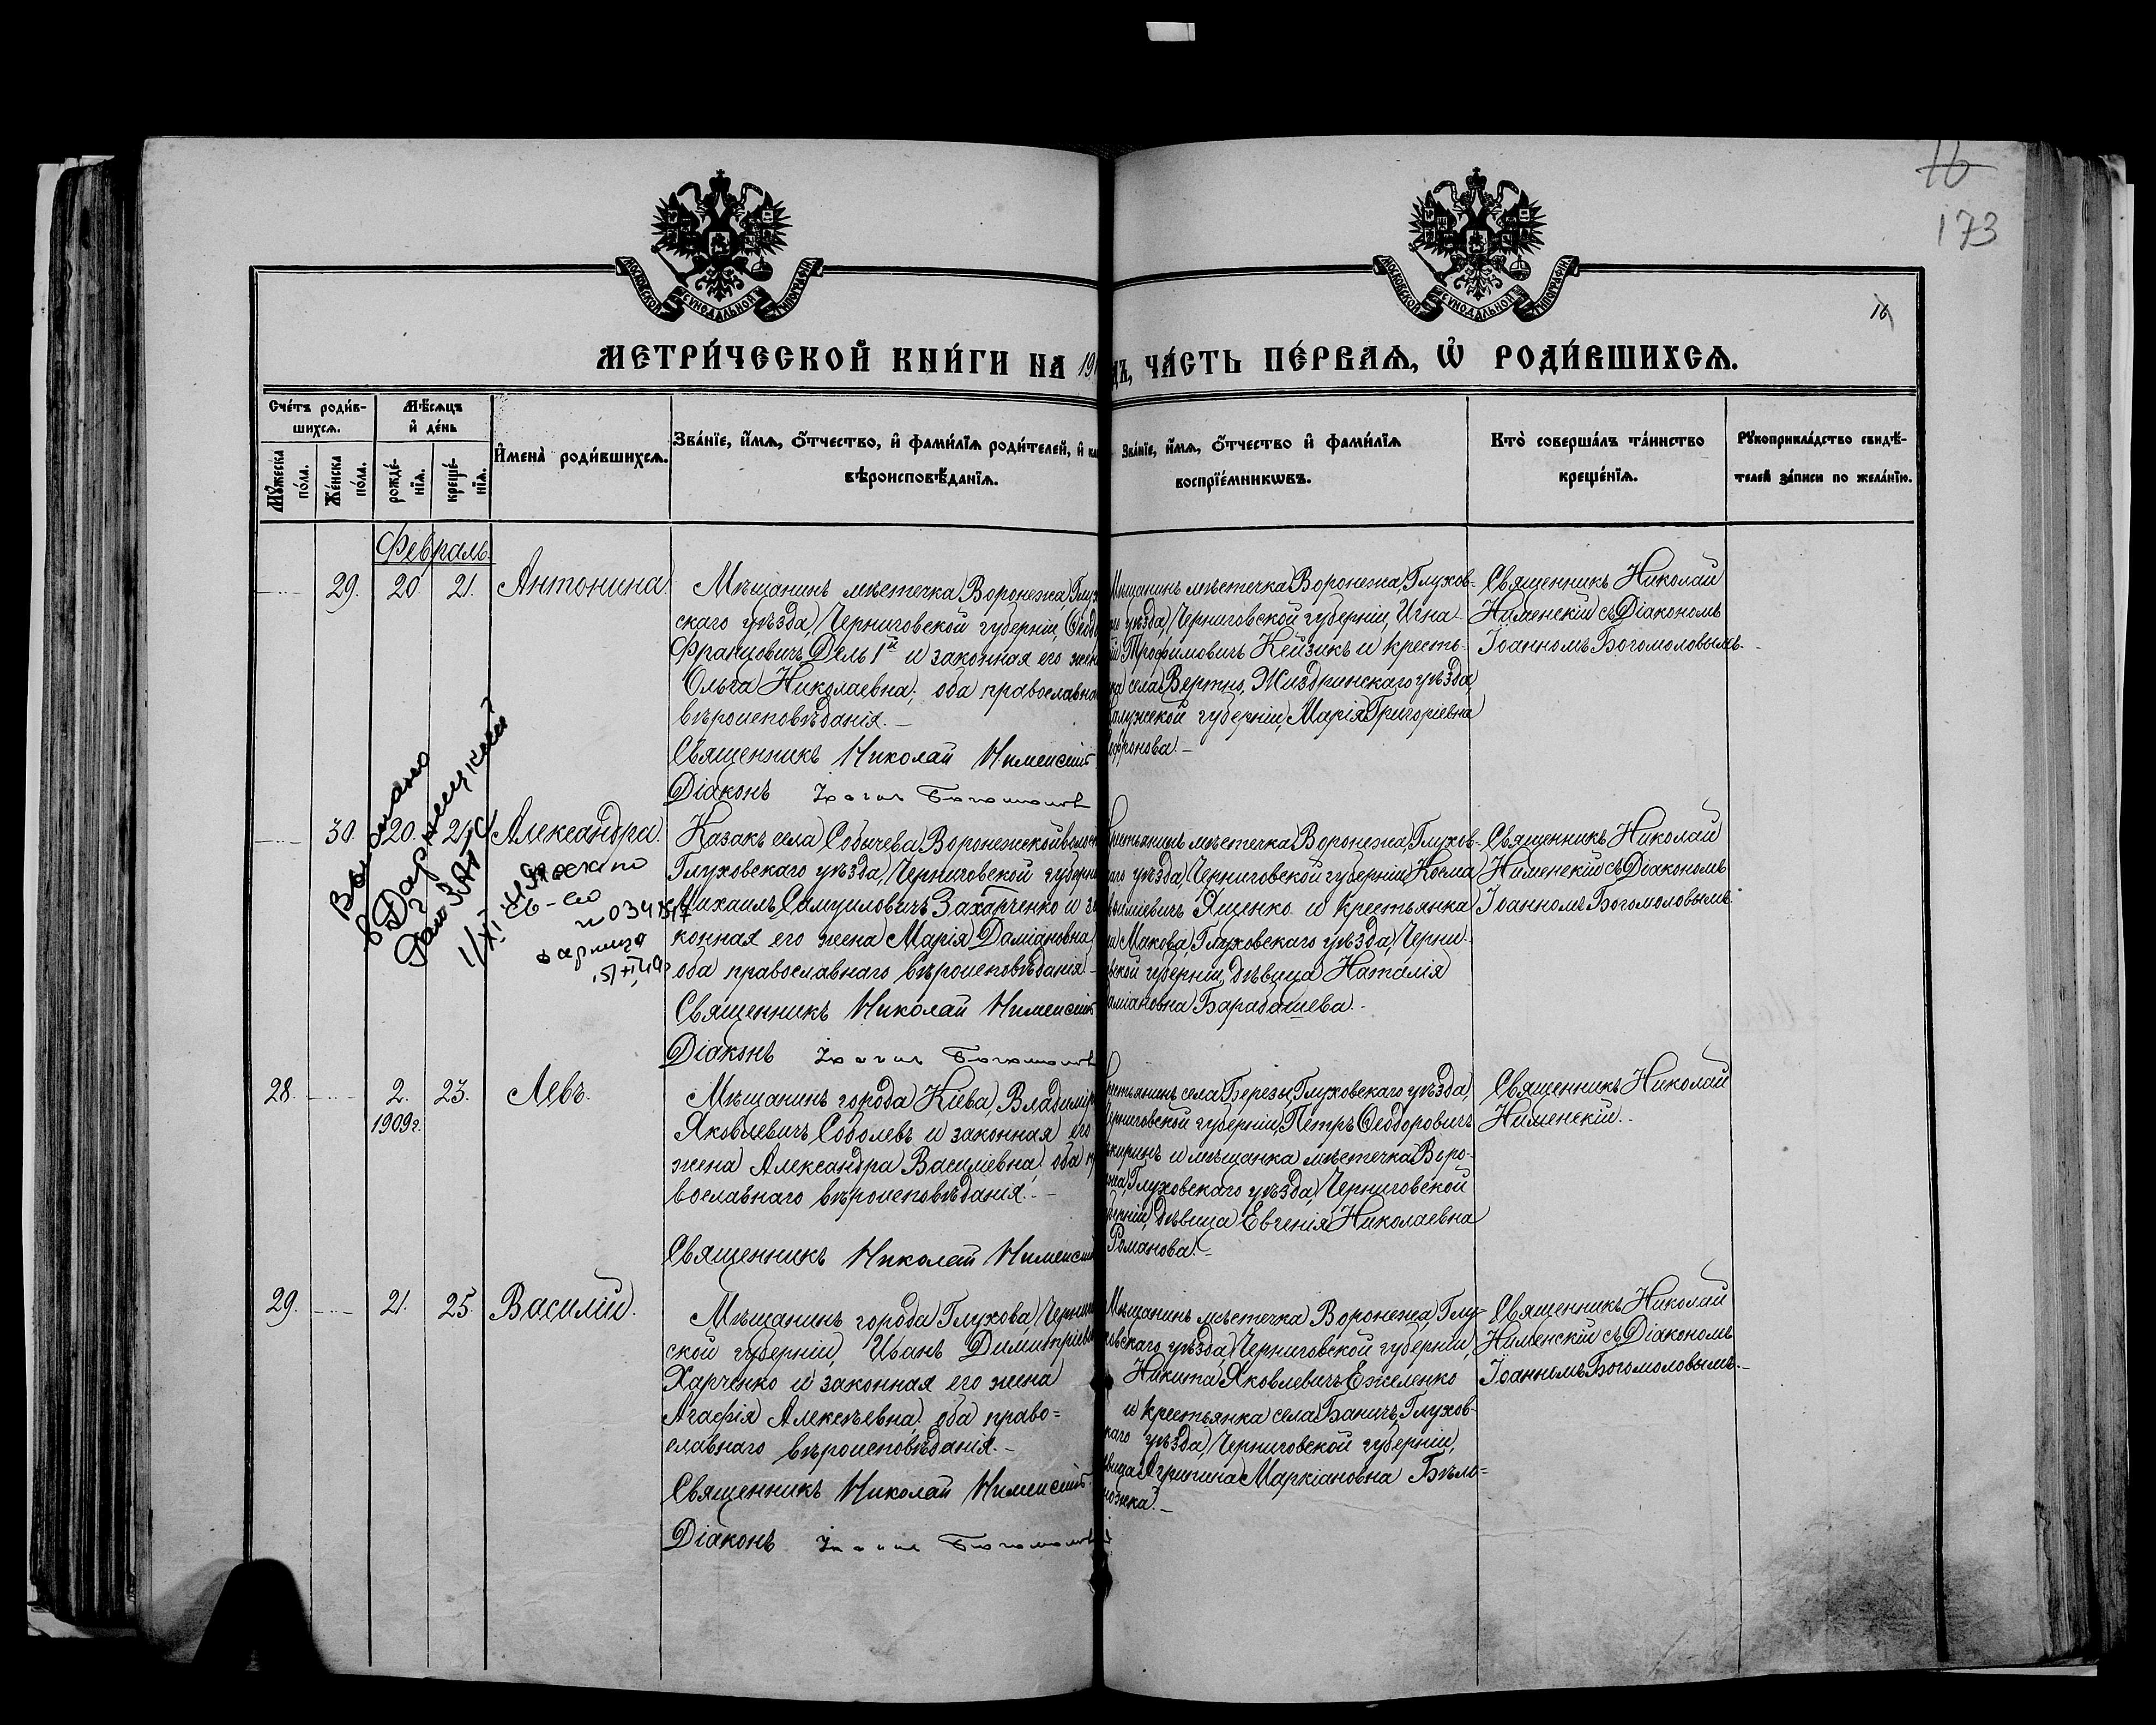 16
173
16
МОСКОВСКОЙ СѴНОДАЛЬНОЙ ТИПОГРАФІИ
МОСКОВСКОЙ СѴНОДАЛЬНОЙ ТИПОГРАФІИ
МЕТРИ́ЧЕСКОЙ КНИ́ГИ НА 191
ДЪ, ЧА́СТЬ ПЕ́РВАѦ, Ѡ҆ РОДИ́ВШИХСѦ.
Сче́тъ роди́в-
шихсѧ.
Мꙋ́жеска
по́ла.
Же́нска
по́ла.
Мѣ́сѧцъ
и҆ де́нь
рожде́-
нїѧ.
креще́-
нїѧ.
И҆мена̀ роди́вшихсѧ.
Зва́нїе, и҆́мѧ, ѻ҆́тчество, и҆ фами́лїѧ роди́телей, и҆ ка
вѣроисповѣ́данїѧ.
Зва́нїе, и҆́мѧ, ѻ҆́тчество и҆ фами́лїѧ
воспрїе́мникѡвъ.
Кто̀ соверша́лъ та́инство
креще́нїѧ.
Рꙋкоприкла́дство свидѣ́-
телей за́писи по жела́нїю.
Февраль.
29. 20. 21. Антонина.
Мѣщанинъ мѣстечка Воронежа, Глух
скаго уѣзда, Черниговской губерніи, Ѳеодо
Францовичъ Дель 1й и законная его жен
Ольга Николаевна; оба православна
вѣроисповѣданія.—
Священникъ Николай Нименскій
Діаконъ Іоаннъ Богомолов
Мѣщанинъ мѣстечка Воронежа, Глухов-
аго уѣзда, Черниговской губерніи, Игна-
ій Трофимовичъ Кейзикъ и кресть-
ка села Вертно, Жиздринскаго уѣзда,
Калужской губерніи, Марія Григоріевна
фронова.—
Священникъ Николай
Нименскій съ Діакономъ
Іоанномъ Богомоловымъ.
30. 20. 21. Александра.
Выслано
в Дарницкий
ЗАГС
Дарница
Казакъ села Собычева, Воронежской волос
Глуховскаго уѣзда, Черниговской губерн
Михаилъ Самуиловичъ Захарченко и за
конная его жена Марія Даміановна,
оба православнаго вѣроисповѣданія.—
Священникъ Николай Нименскій
Діаконъ Іоаннъ Богомолов
Крестьянинъ мѣстечка Воронежа, Глухов-
аго уѣзда, Черниговской губерніи, Косма
виміевичъ Ященко и крестьянка
ла Макова, Глуховскаго уѣзда, Черни-
вской губерніи, дѣвица Наталія
аміановна Барабашева.—
Священникъ Николай
Нименскій съ Діакономъ
Іоанномъ Богомоловымъ.
28. 2. 23. Левъ.
1909 г.
Мѣщанинъ города Кіева, Владимір
Яковлевичъ Соболевъ и законная его
жена Александра Василіевна, оба пр
вославнаго вѣроисповѣданія.—
Священникъ Николай Нименскій
Крестьянинъ села Березы, Глуховскаго уѣзда,
Черниговской губерніи, Петръ Ѳеодоровичъ
киринъ и мѣщанка мѣстечка Воро-
жа, Глуховскаго уѣзда, Черниговской
берніи, дѣвица Евгенія Николаевна
Романова.—
Священникъ Николай
Нименскій.
29. 21. 25. Василій.
Мѣщанинъ города Глухова, Черниго
ской губерніи, Иванъ Димитріеви
Харченко и законная его жена
Агафія Алексѣевна, оба право=
славнаго вѣроисповѣданія.—
Священникъ Николай Нименскій
Діаконъ Іоаннъ Богомолов
Мѣщанинъ мѣстечка Воронежа, Глу-
ховскаго уѣзда, Черниговской губерніи,
Никита Яковлевичъ Ежеленко
и крестьянка села Баничъ, Глухов-
скаго уѣзда, Черниговской губерніи,
вица Агрипина Маркіановна Бѣло=
ножка.—
Священникъ Николай
Нименскій съ Діакономъ
Іоанномъ Богомоловымъ.